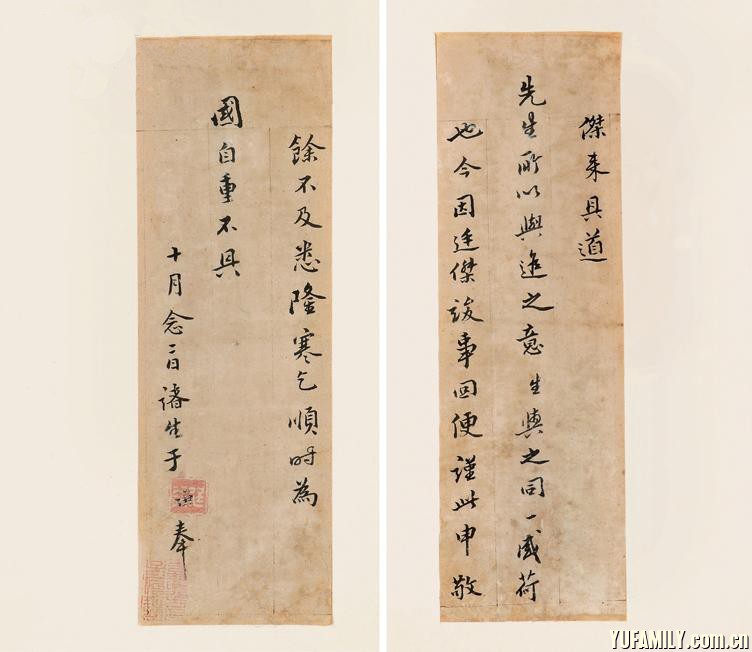 傑来具道
先生所以與進之意生與之同一感荷
也今因廷傑竣事回便謹此申敬
餘不及悉隆寒乞順時為
國自重不具
十月念二日諸生于謙奉
YUFAMILY.com.cn